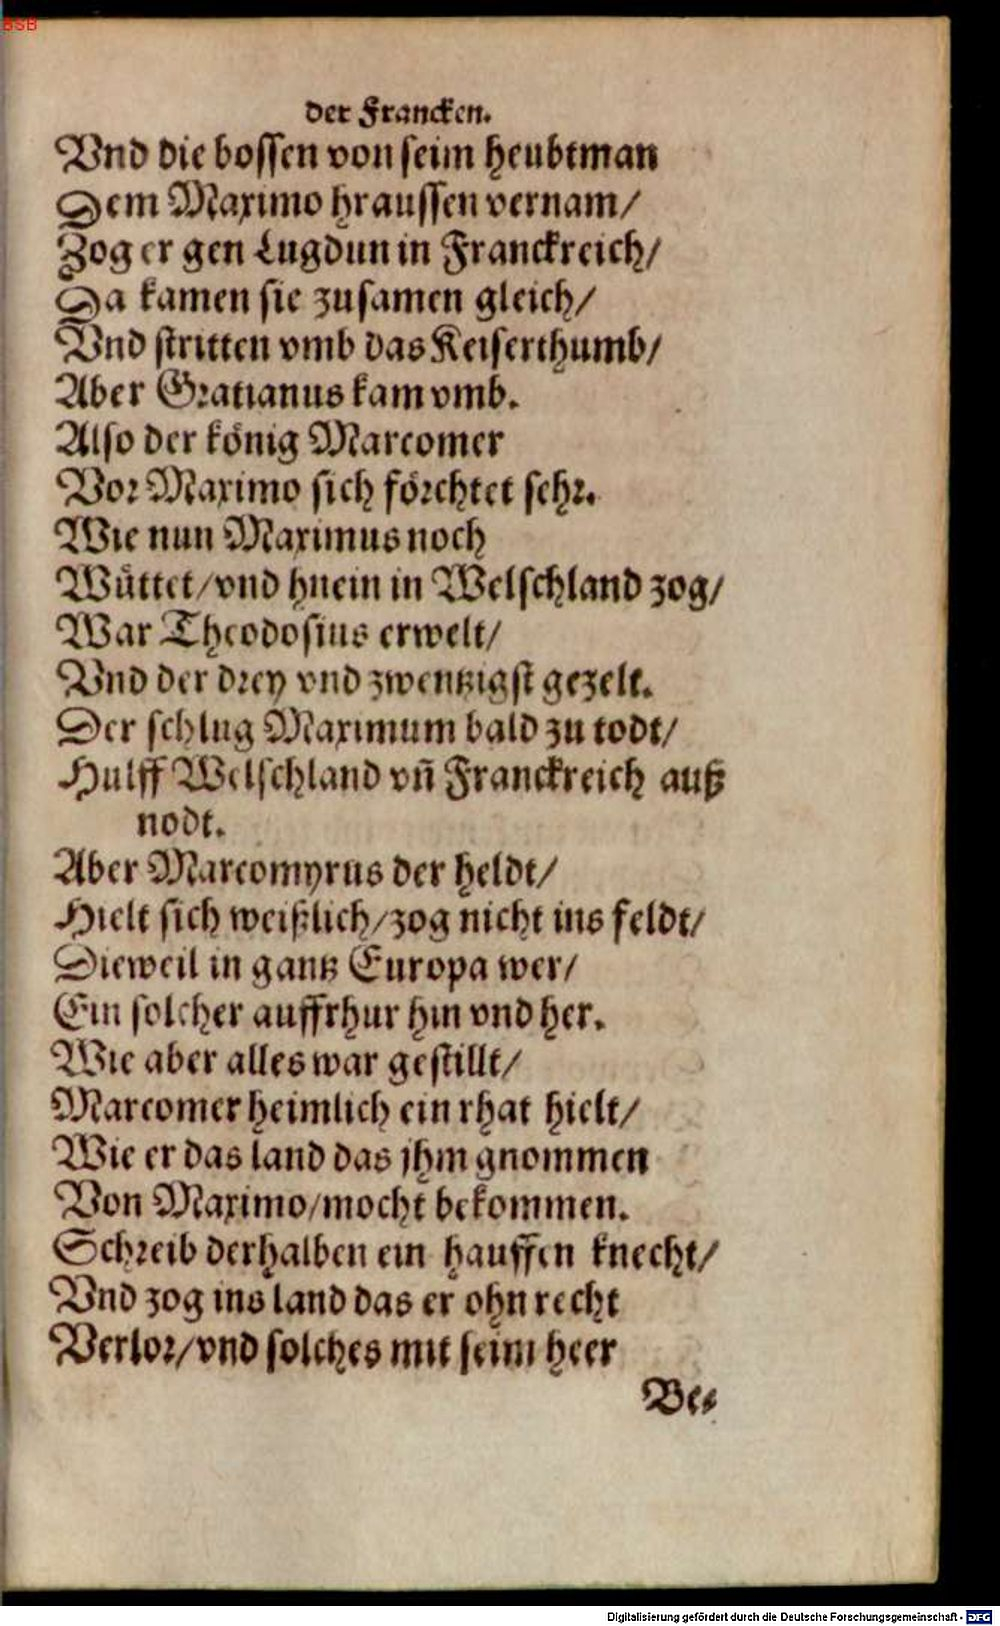 BSB
der Francken.
Vnd die bossen von seim heubtman
Dem Maximo hraussen vernam/
Zog er gen Lugdun in Franckreich/
Da kamen sie zusamen gleich/
Vnd stritten vmb das Keiserthumb/
Aber Gratianus kam vmb.
Also der könig Marcomer
Vor Maximo sich förchtet sehr.
Wie nun Maximus noch
Wüttet/vnd hnein in Welschland zog/
War Theodosius erwelt/
Vnd der drey vnd zwentzigst gezelt.
Der schlug Maximum bald zu todt/
Hulff Welschland vñ Franckreich auß
nodt.
Aber Marcomyrus der heldt/
Hielt sich weißlich/zog nicht ins feldt/
Dieweil in gantz Europa wer/
Ein solcher auffrhur hin vnd her.
Wie aber alles war gestillt/
Marcomer heimlich ein rhat hielt/
Wie er das land das jhm gnommen
Von Maximo/mocht bekommen.
Schreib derhalben ein hauffen knecht/
Vnd zog ins land das er ohn recht
Verlor/vnd solches mit seim heer
Be-
Digitalisierung gefördert durch die Deutsche Forschungsgemeinschaft - DFG